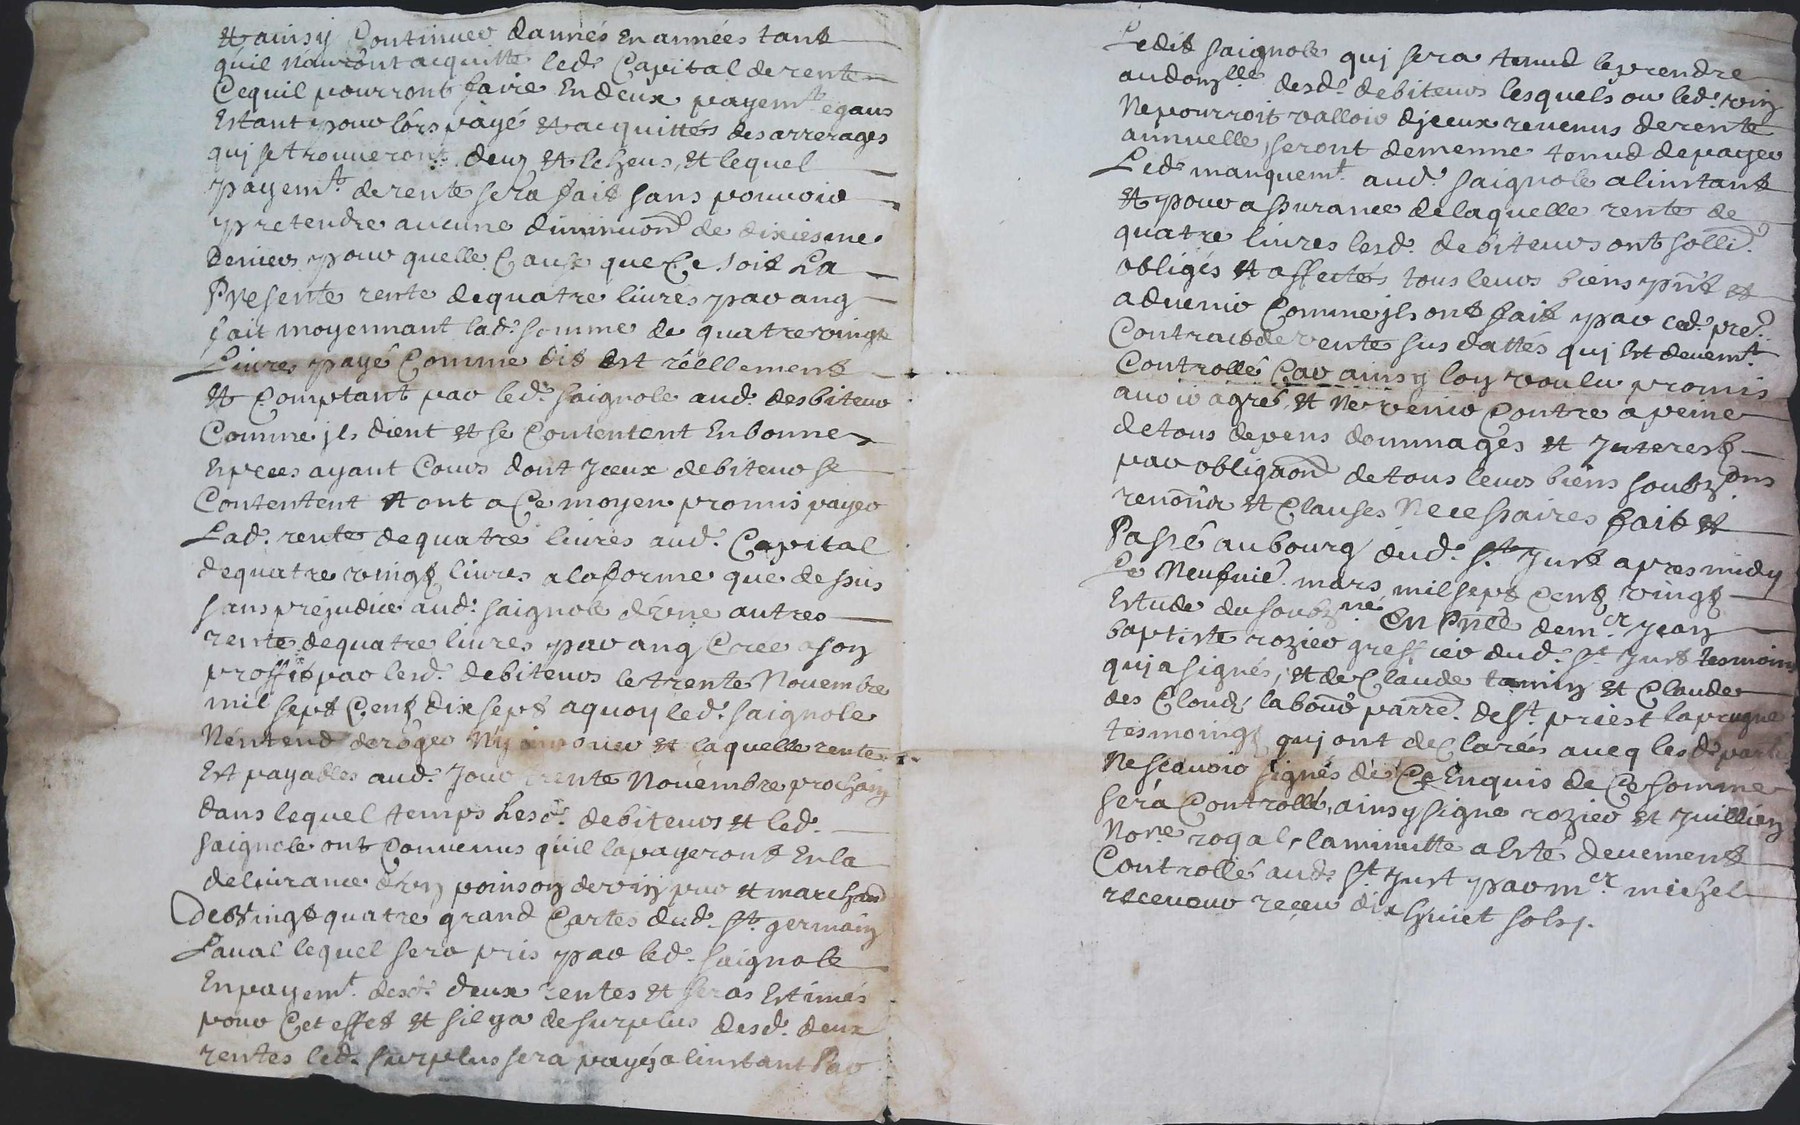 et ainsy Continuer dannés en années tant
quil nauront acquitté led. Capital de rente
Cequil pourront faire En deux payemt egaus
Estant pour lors payé et acquittés des arrerages
quj se trouveront deuz et Escheus, et lequel
payemt. de rente sera fait sans pouvoir
pretendre aucune diminuon de dixiesme
deniers pour quelle Cause que Ce soit La
Presente rente de quatre livres par ang
fait moyennant lad. somme de quatre vingt
Livres payé Comme dit Est réellement
et Comptant par led. saignole aud. desbiteur
Comme jls dient et se Contentent En bonnes
Especes ayant Cours dont Jceux debiteur se
Contentent et ont a Ce moyen promis payer
Lad. rente de quatre livres aud. Capital
de quatre vingt livres a la forme que dessus
sans préjudice aud. saignole dune autres
rente de quatre livres par ang Créée a son
proffit par lesd. debiteurs le trente Novembre
mil sept Cent dix sept a quoy led. saignole
N'entend deroger Ny innover et laquelle rente
Est payables aud. Jour trente Novembre prochain
dans lequel temps Lesd. debiteurs et led.
saignole ont Convenus qu'il la payeront En la
delivrance d'un poinson de vin pur et marchand
de Vingt quatre grand Cartes dud. St. germain
Laval lequel sera pris par led. saignole
En payemt. desd. deux rentes et seras Estimés
pour Cet effet et sil y a de surplus desd. deux
rentes led. surplus sera payés a linstant Par
Ledit saignole quj sera tenud le prendre
au domylle desd. debiteurs lesquels ou led. vin
Ne pourroit valloir djceux revenus de rente
annuelle, seront de menne tenud de payer
Led. manquemt. aud. saignole a linstant
et pour assurance de laquelle rente de
quatre livres lesd. debiteurs ont sollid.
obligés et affectés tous leurs biens pnt et
advenir Comme jls ont fait par led. pre.
Contract de rente sus dattés quj Est devemt
Controllé Car ainsy lon voulu promis
avoir agré et Ne venir Contre a peine
de tous depens dommages et Jnterest
par obligaon de tous leurs biens soubzons
renonn et Clauses Necessaires fait et
Passé au bourg dud. St. Just apres midy
Le Neufvie. mars mil sept Cent vingt
Estude du soubne En Pnce de mer Jean
baptiste rozier greffier dud. St Just tesmoins
quj a signés, et de Claude et Claude
des Cloud labour parre. de St. priest laprugne
tesmoing qui ont declarés avecq lesd. parties
Ne scavoir signés de Ce Enquis de Ce somme
sera Controllé, ainsy signe rozier et Juillien
Nore royal, la minutte a Esté devement
Controllé aud. St Just par mer michel
receveur receu dix huict sols.